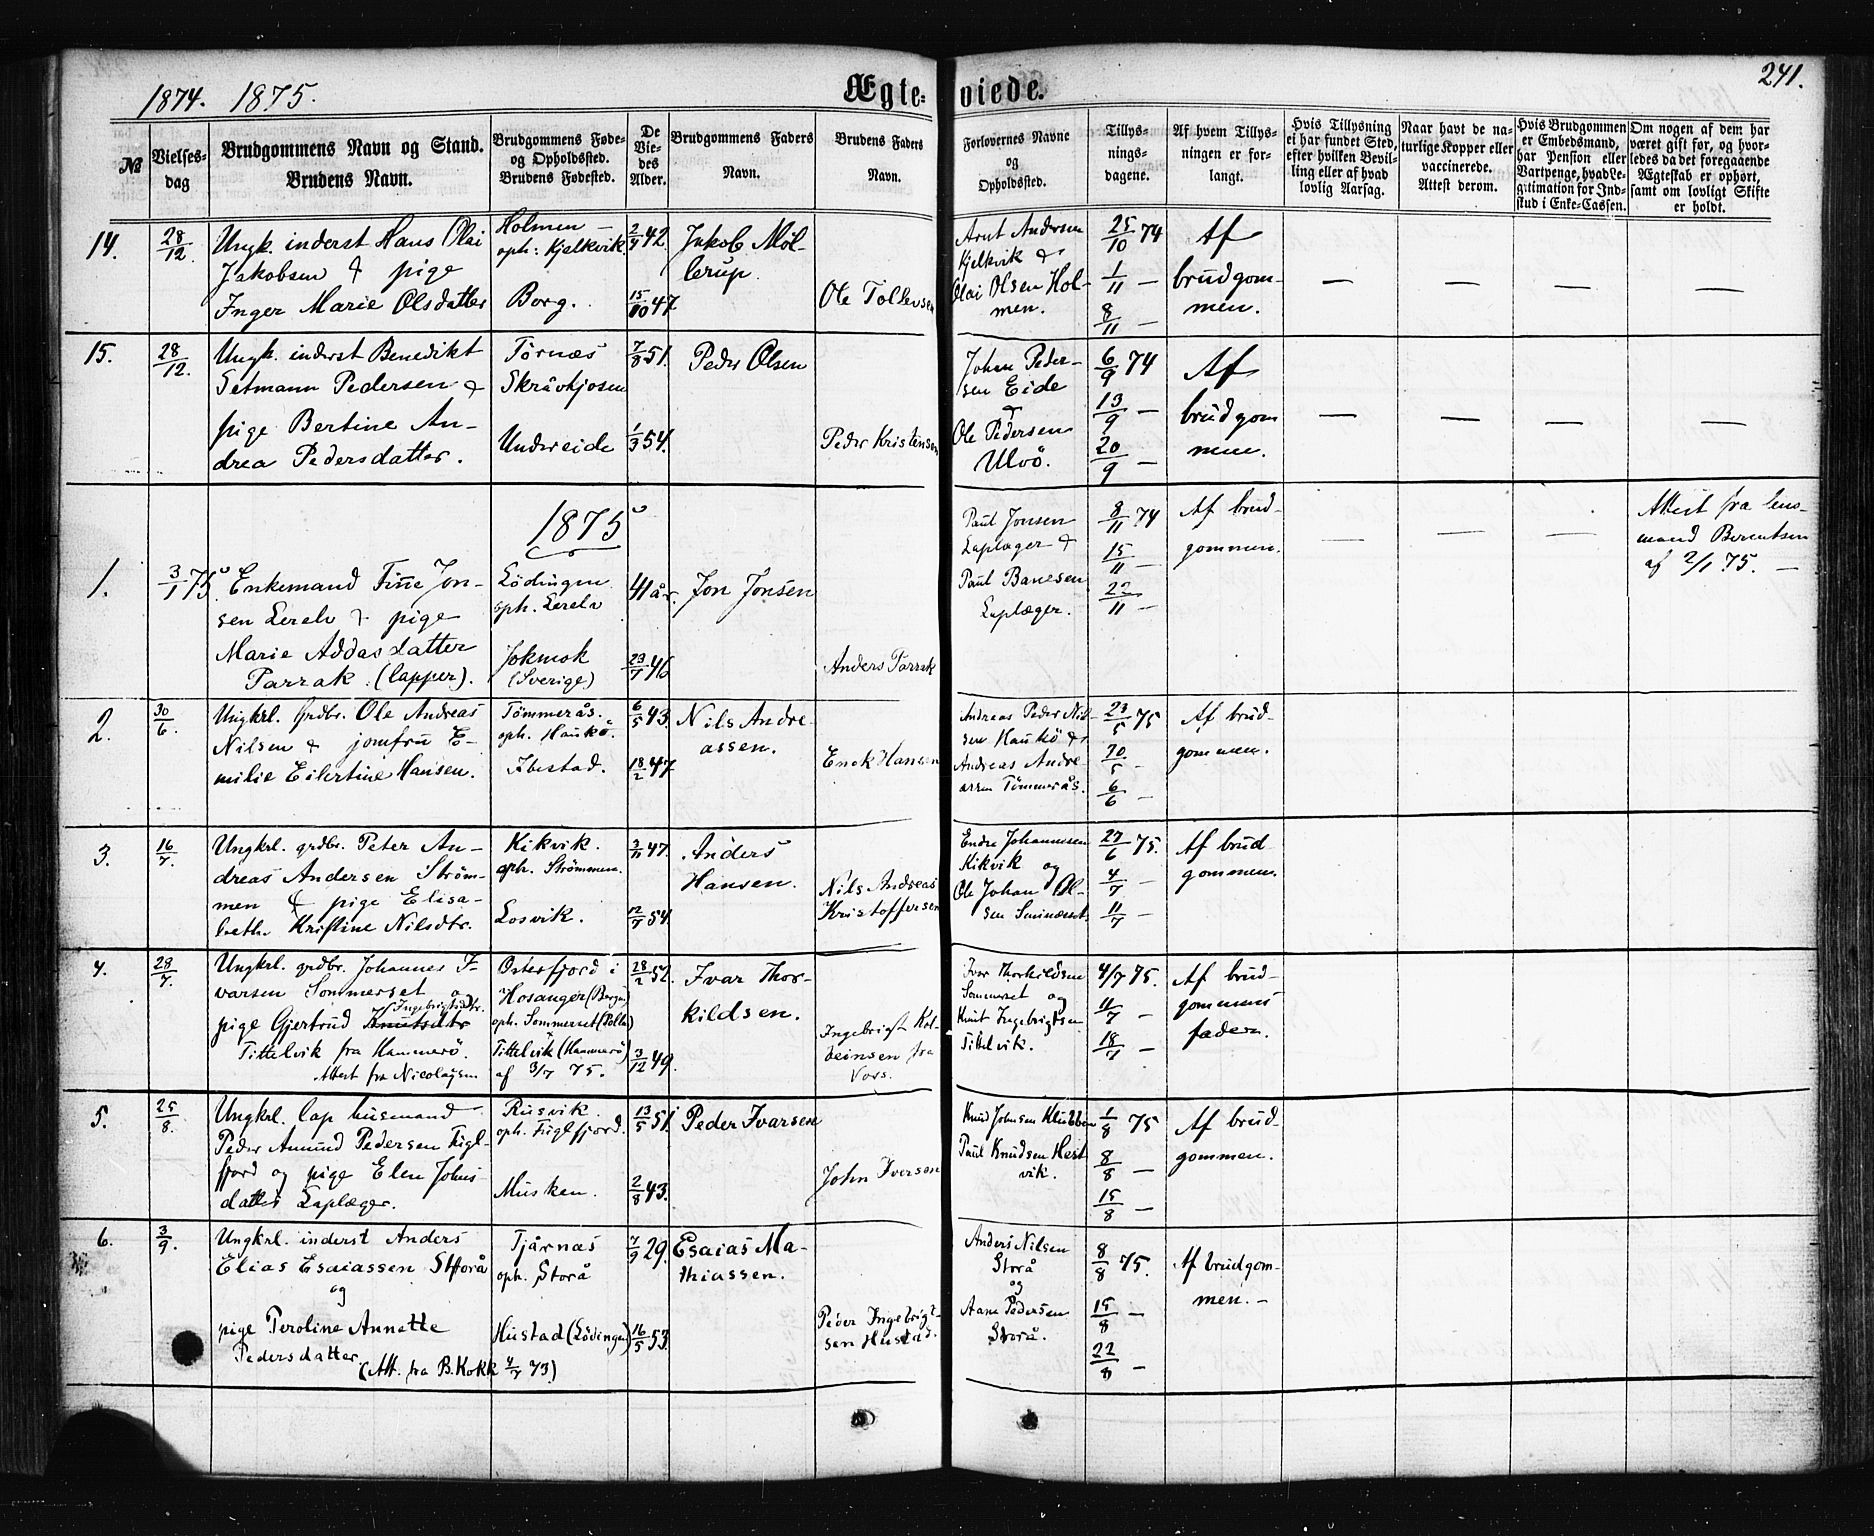 1874. 1875.
Ægteviede.
241.
№
Vielses-
dag
Brudgommens Navn og Stand.
Brudens Navn.
Brudgommens Føde-
og Opholdssted.
Brudens Fødested.
De
Vie-
des
Alder.
Brudgommens Faders
Navn.
Brudens Faders
Navn.
Forlovernes Navne
og
Opholdssted.
Tillys-
nings-
dagene.
Af hvem Tillys-
ningen er for-
langt.
Hvis Tillysning
ei har fundet Sted,
efter hvilken Bevil-
ling eller af hvad
lovlig Aarsag.
Naar havt de na-
turlige Kopper eller
vaccinerede.
Attest derom.
Hvis Brudgommen
er Embedsmand,
har Pension eller
Vartpenge, hvad Le-
gitimation for Ind-
skud i Enke-Cassen.
Om nogen af dem har
været gift før, og hvor-
ledes da det foregaaende
Ægteskab er ophørt,
samt om lovligt Skifte
er holdt.
14.
28/12.
Ungk. inderst Hans Olai
Jakobsen & pige
Inger Marie Olsdatter
Holmen –
oph: Kjelkvik.
Borg.
2/4 42.
15/10 47.
Jakob Møl-
lerup.
Ole Tollevsen
Arnt Andersen
Kjelkvik &
Olai Olsen Hol-
men.
25/10 74
1/11 —
8/11 —
Af
brudgom-
men.
— — — —
15.
28/12.
Ungk. inderst Benedikt
Setmann Pedersen &
pige Bertine An-
drea Pedersdatter.
Tørnæs
Skråvkjosen
Undereide
7/8 51.
1/3 54.
Peder Olsen
Peder Kristensen
Johan Peder-
sen Eide
&
Ole Pedersen
Ulvö.
6/9 74
13/9 —
20/9 —
Af
brudgom
men.
— — — —
1875
1.
3/1 75.
Enkemand Finne Jon-
sen Lerelv & pige
Marie Addasdatter
Parrak. (lapper).
Lödingen
oph. Lerelv
Jokmok
(Sverige)
41 år.
23/7 46
Jon Jonsen
Anders Parrak
Paul Jonsen
Laplæger &
Paul Banesen
Laplæger.
8/11 74
15/11 —
22/11 —
Af brud-
gommen.
— — —
Attest fra lens-
mand Berentsen
af 2/1 75. —
2.
30/6.
Ungkrl. Grdbr. Ole Andreas
Nilsen & jomfru E-
milie Eilertine Hansen.
Tömmerås.
oph. Haukö.
Ibestad.
6/5 43.
18/2 47
Nils Andre-
assen.
Enok Hansen
Andreas Peder Nil-
sen Haukö &
Andreas Andre
assen Tömmerås.
23/5 75
30/5 -
6/6 —
Af brud-
gommen.
3.
16/7.
Ungkrl. grdbr. Peter An-
dreas Andersen Ström-
men & pige Elisa-
beth Kristine Nilsdtr.
Kikvik.
oph. Strömmen.
Losvik.
3/11 47.
12/7 54.
Anders
Hansen.
Nils Andreas
Kristoffersen
Endre Johannesen
Kikvik og
Ole Johan Ol-
sen
27/6 75.
4/7 —
11/7 —
Af brud
gommen.
4.
28/7.
Ungkrl. grdbr. Johannes I-
varsen Sommerset o
Ingebrigtsdtr.
pige Gjertrud Knutsdtr
Tittelvik fra Hammerö.
Attest fra Nicolaysen
Osterfjord i
Hosanger (Bergen)
oph. Sommerset
Tittelvik (Hammerö)
af 3/7 75.
28/2 52.
3/12 49.
Ivar Thor-
kildsen.
Ingebrigt Kol-
beinsen fra
Vors.
Ivar Thorkildsen
Sommerset og
Knut Ingebrigtsen
Tittelvik.
4/7 75.
11/7 —
18/7 —
Af brud-
gommens
fader.
5.
25/8.
Ungkrl. lap husmand
Peder Amund Pedersen Fugl-
fjord og pige Elen Johns-
datter Laplæger.
Rusvik.
oph. Fuglfjord.
Musken.
13/5 51.
2/8 43.
Peder Ivarsen
John Iversen
Knud Johnsen Klubben
Paul Knudsen Hest
vik.
1/8 75
8/8 —
15/8 —
Af brud-
gommen.
6.
3/9.
Ungkrl. inderst Anders
Elias Esaiassen Storå
og
pige Peroline Annette
Pedersdatter.
(Att. fra B. Kokk 4/7 73)
Tjårnæs
oph. Storå
Hustad (Lödingen)
7/9 29.
16/5 53.
Esaias Ma-
thiassen.
Peder Ingebrigt-
sen Hustad.
Anders Nilsen
Storå
og
Aane Pedersen
Storå.
8/8 75.
15/8 —
22/8 —
Af brudgom-
men. –